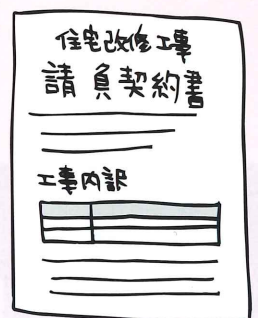 住宅改修工事
請負契約書
工事内訳